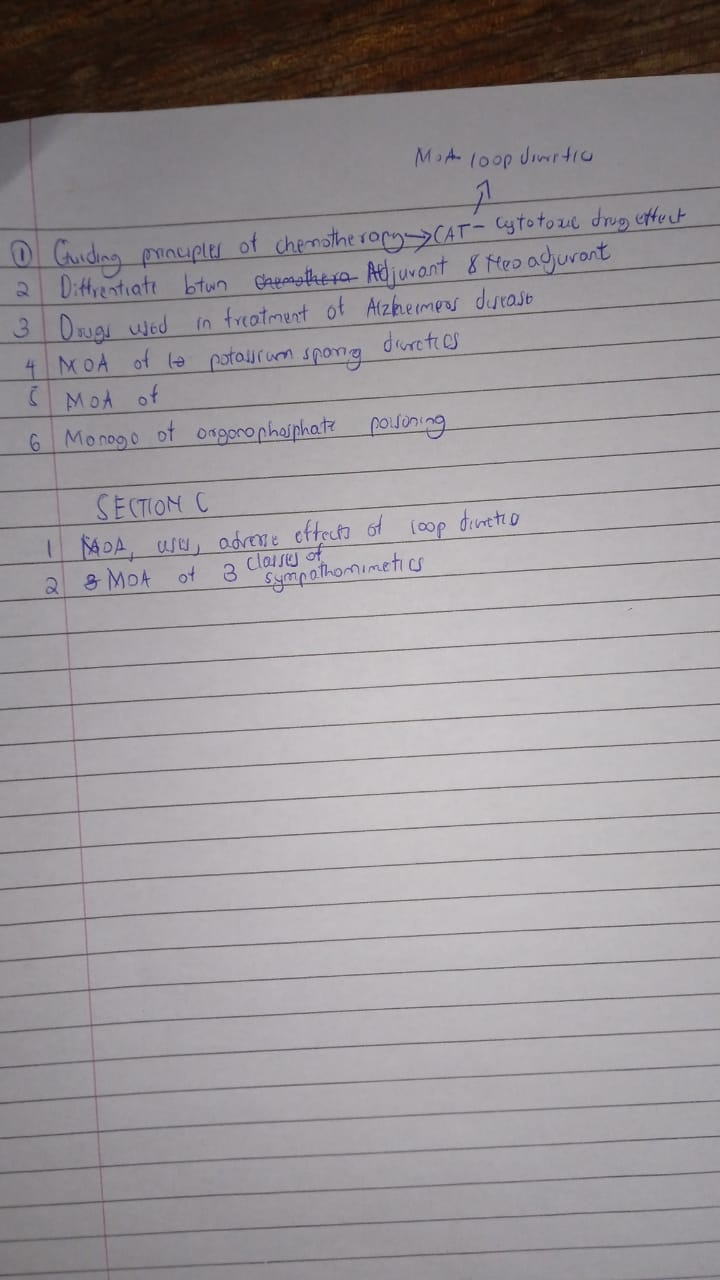 MOA loop diuretic
① Guiding principles of chemotherapy → CAT - Cytotoxic drug effect
2 Diffrentiate btwn Adjuvant & Neoadjuvant
3 Drugs used in treatment of Alzheimers disease
4 MOA of potassium sparing diuretics
5 MOA of
6 Manage of organophosphate poisoning
SECTION C
1 MOA, uses, adverse effects of loop diuretic
2 MOA of 3 classes of sympathomimetics